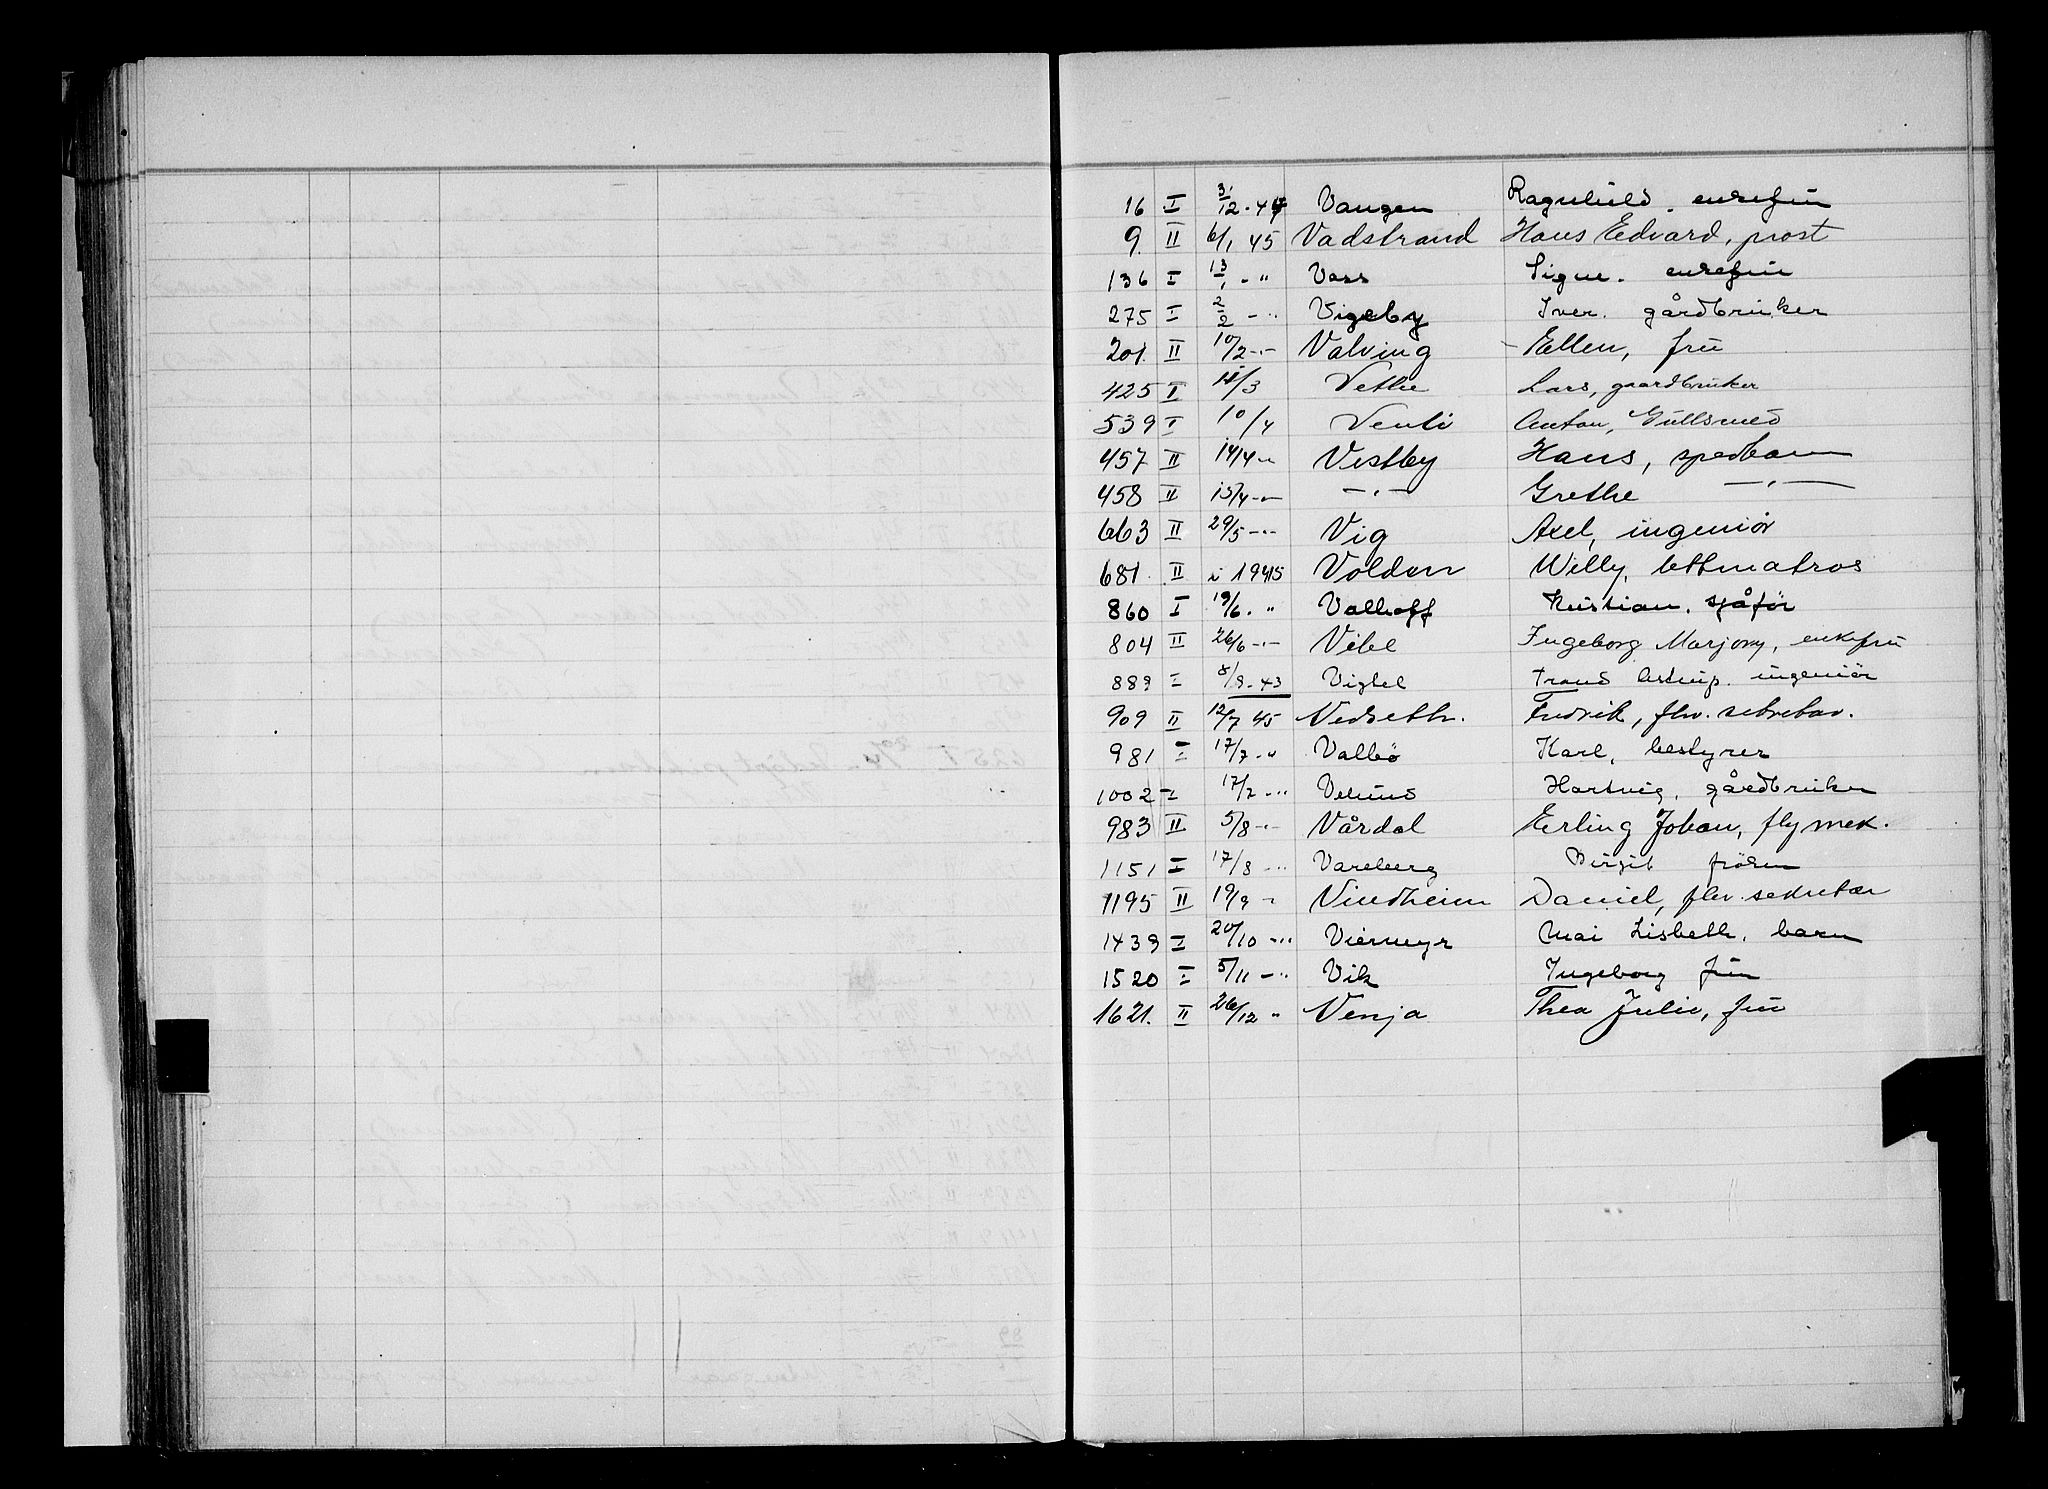 16 I 3/12 - 44 Vangen Ragnhild. enkefru
9. II 6/1 45 Vadstrand Hans Edvard, prost
136 I 13/1 - " Vass Signe. enkefru
275 I 2/2 - " Vigeby Iver. gårdbruker
201. II 10/2 - " - Valving - Ellen, fru
425 I /3 Vethe Lars, gaardbruker
539 I 10/4 Venli Anton, Gullsmed
457 II 14/4 - " - Vestby Hans, spedbarn
458 II 15/4 - " - - " - Grethe - " -
663 II 29/5 - " - Vig Axel, ingeniør
681. II i 1945 Volden Willy, lettmatros
860 I 19/6. " Valhoff Kristian. sjåfør
804 II 26/6 - " - Vibe Ingeborg Marjory, enkefru
889 I 8/9 - 43 Vigtel Trond Astrup. ingeniør
909 II 12/7 45 Vedseth. Fredrik, fhv. sekretær.
981 I 17/7 - " Valbø Karl, bestyrer
1002 I 17/7 - " Velund Hartvig, gårdbruker
983 II 5/8 - " - Vårdal Erling Johan, flymek.
1151 I 17/8 - " Vareberg Birgit frøken
1195 II 19/9 - " Vindheim Daniel, fhv. sekretær
1439 I 20/10 - " Viermyr Mai Lisbeth. barn
1520 I 5/11 - " Vik Ingeborg fru
1621. II 26/12 " Venja Thea Julie, fru